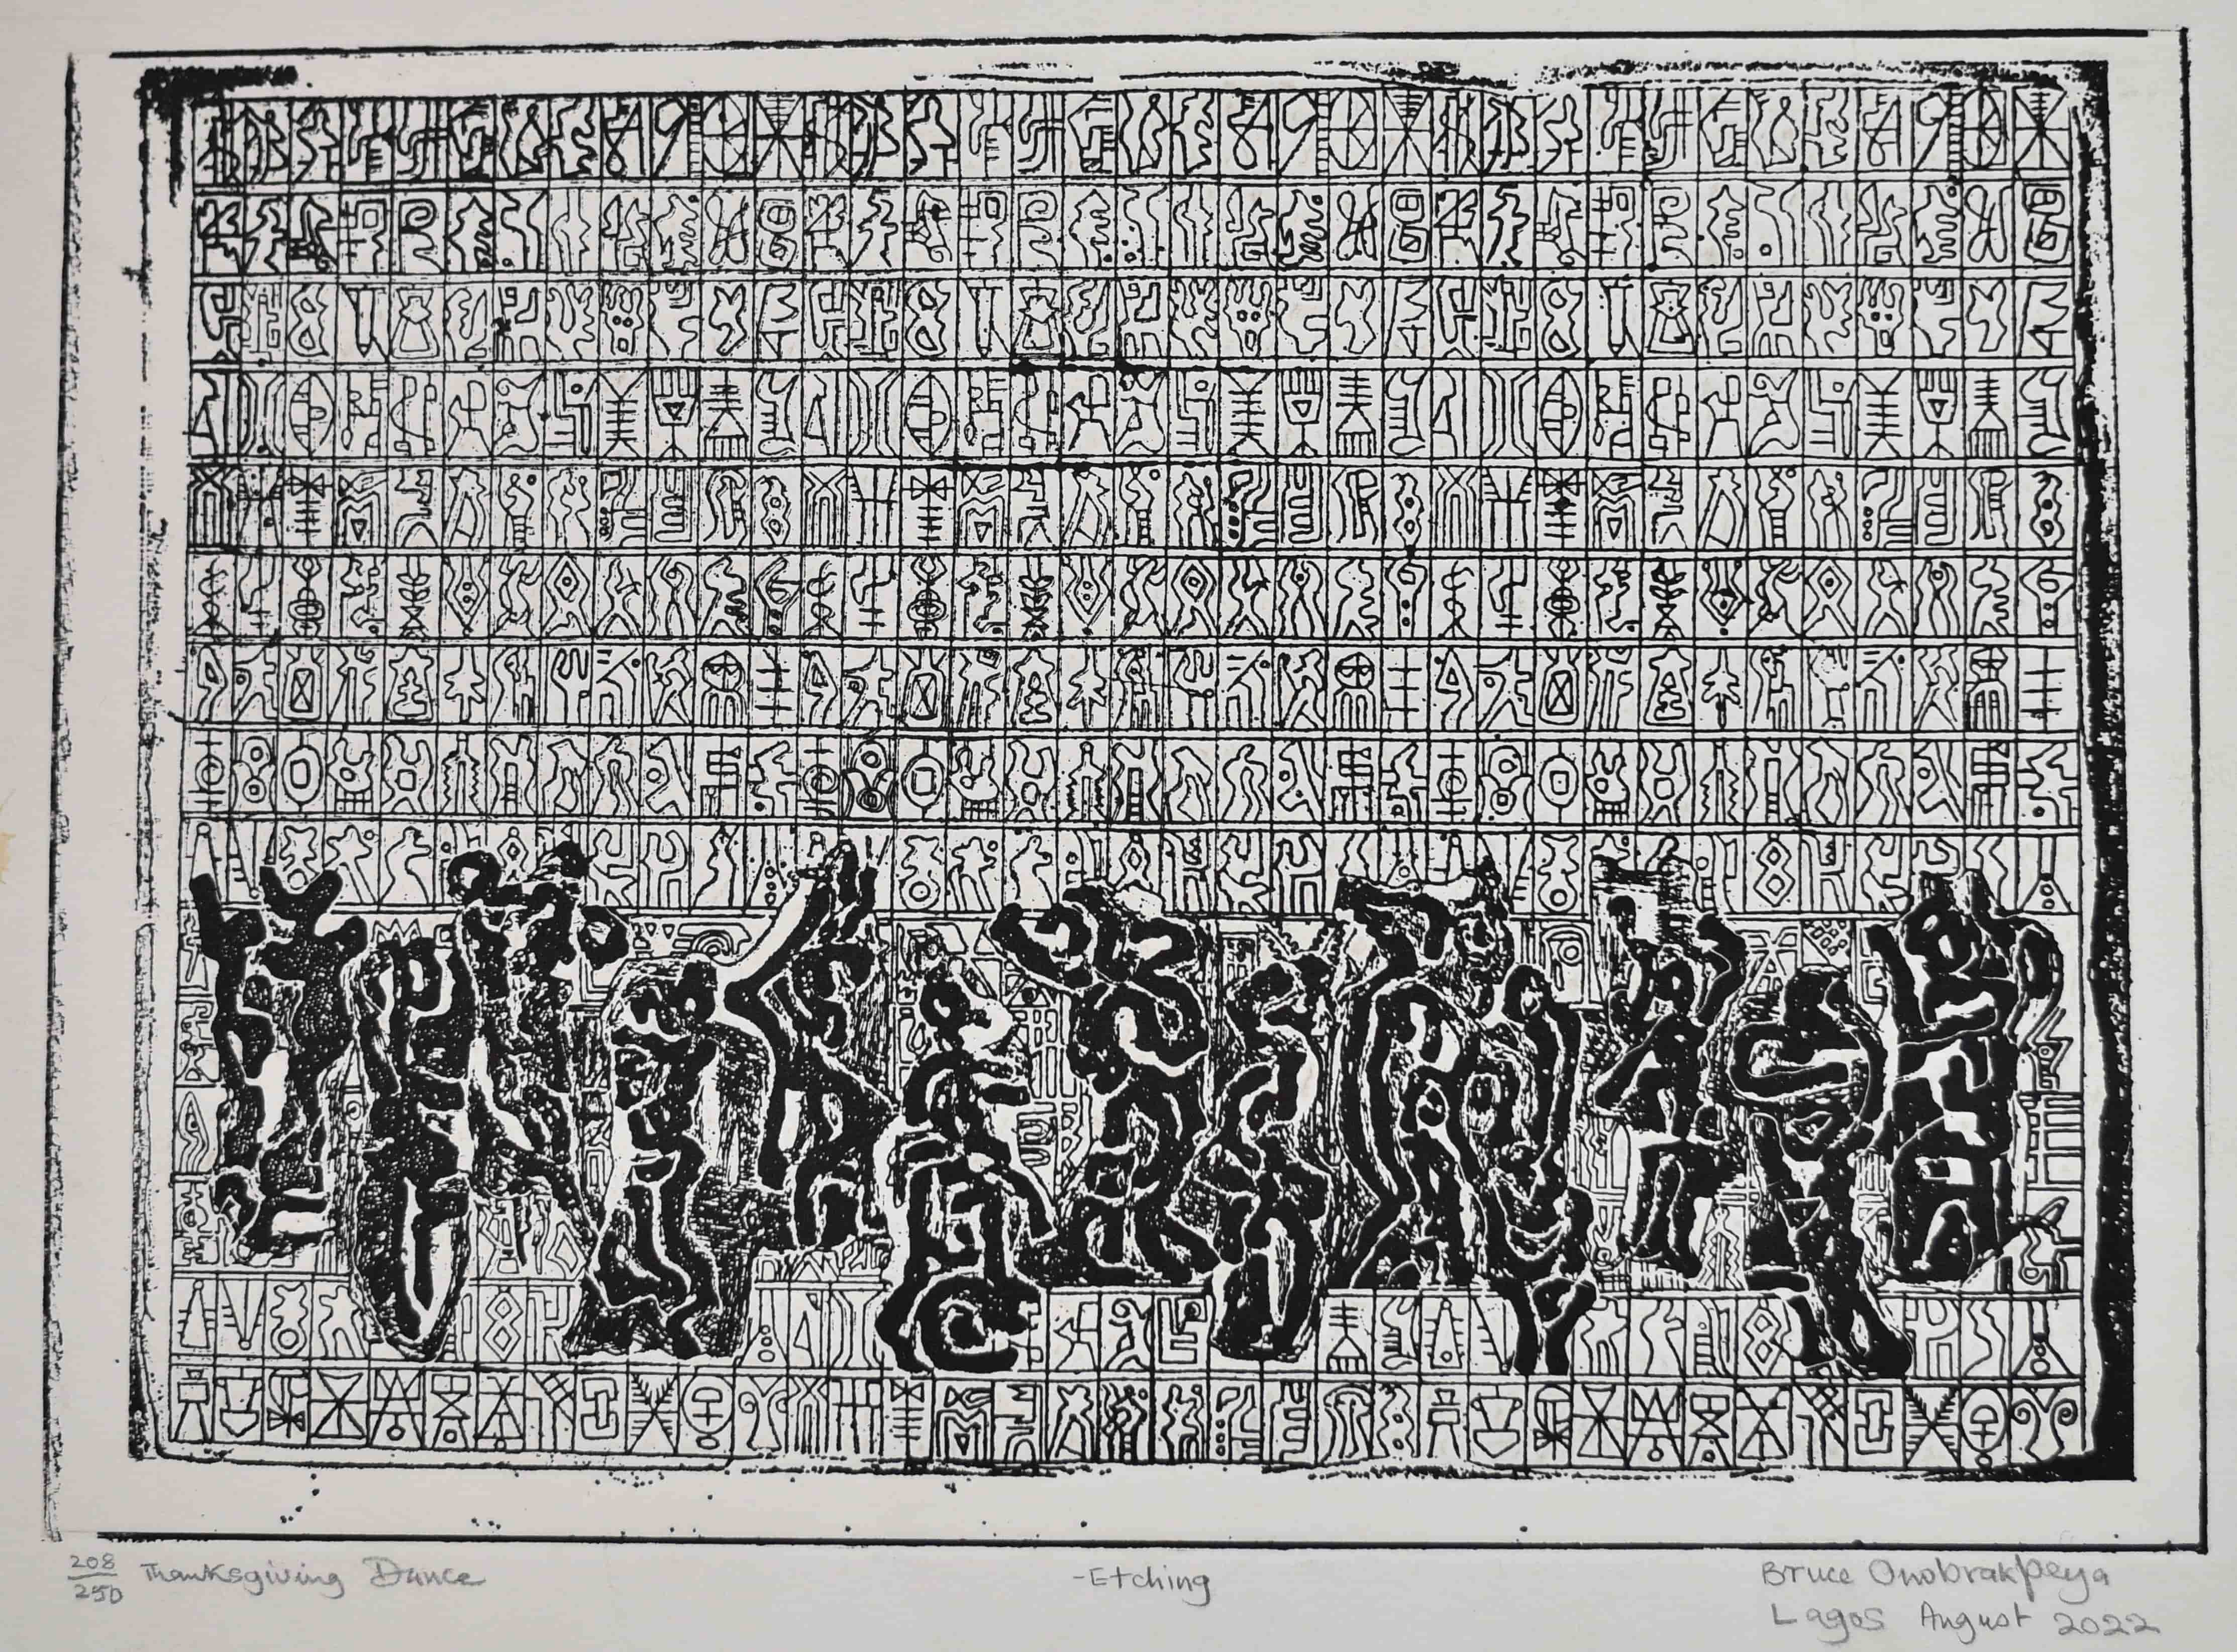 208/250 Thanksgiving Dance
-Etching
Bruce Onobrakpeya
Lagos August 2022